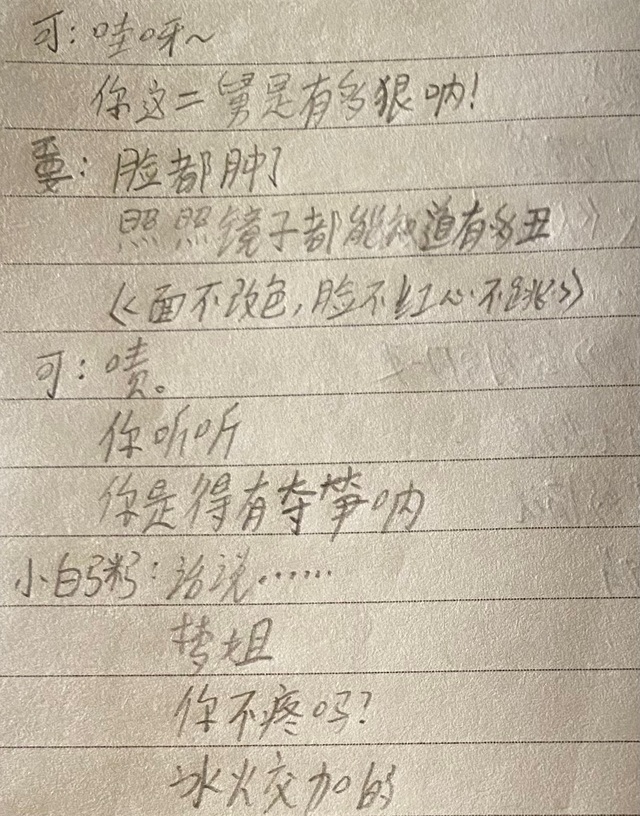 可：哇呀～
你这二舅是有多狠呐！
要：脸都肿了
照照镜子都能知道有多丑
《面不改色，脸不红心不跳》
可：啧。
你听听
你是得有夺笋呐
小白粥：话说……
梦姐
你不疼吗？
冰火交加的